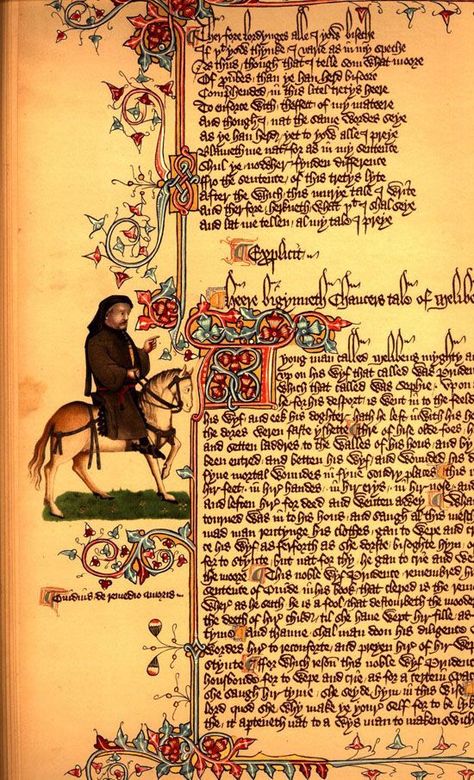 Therfore lordynges alle I yow biseche
If þt yow thynke I varie as in my speche
As thus though that I telle som what moore
Of þuerbes than ye han herd bifoore
Comprehended in this litel tretys heere
To enforce with theffect of my mateere
And though I nat the same wordes seye
As ye han herd yet to yow alle I preye
Blameth me nat for as in my sentence
Shul ye nowher fynden difference
Fro the sentence of this tretys lyte
After the which this murye tale I write
And therfore herkneth what þt I shal seye
And lat me tellen al my tale I preye
Explicit
Heere bigynneth Chaucers tale of Melibe
A Yong man called Melibeus myghty a
up on his wyf that called was Pruden
which that called was Sophie upon
he for his desport is went in to the feeld
his wyf and eek his doghter hath he left inwith his h
the dores weren faste yshette Thre of hise olde foes h
and setten laddres to the walles of his hous and by
been entred and betten his wyf and wounded his d
fyue mortal woundes in fyue sondry places this
hir feet in hir handes in hir erys in hir nose and
and leften hir for deed and wenten awey Whan
retourned was in to his hous and saugh al this mesch
mad man rentynge his clothes gan to wepe and cr
ce his wyf as ferforth as she dorste bisoghte hym o
for to stynte but nat for thy he gan to crie and we
the moore This noble wyf Prudence remembred hir
sentence of Ouide in his book that cleped is the rem
wher as he seith he is a fool that destourbeth the mooder
the deeth of hir child til she haue wept hir fille as
tyme and thanne shal man doon his diligence
wordes hir to reconforte and preyen hir of hir wep
stynte For which reson this noble wyf Prudence
housbonde for to wepe and crie as for a certein space
she saugh hir tyme she seyde hym in this wise
lord quod she why make ye your self for to be lyk
the it aperteneth nat to a wys man to maken swich
Ouidius de remedio amoris